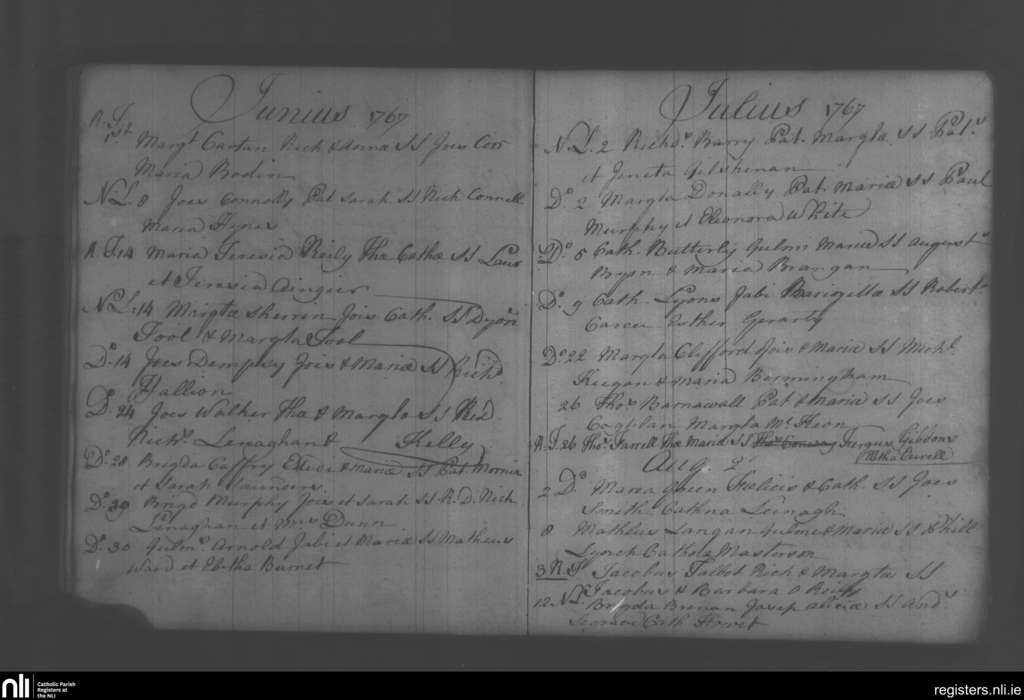 Junius 1767
R. F. 1st Margt Cartan Rich & Anna SS Joes Corr
Maria Bodin
N L. 8 Joes Connolly Pat Sarah SS Nich Connell
Maria Hynes
R. F. 14 Maria Teresia Reily Tha Catha SS Laur
et Teresia Aingier
N L. 14 Margta Sherren Jois Cath. SS
Tool & Margta Tool
Do. 14 Joes Dempsey Jois & Maria SS Richd
Hallion
Do 24 Joes Walker Tha & Margta SS Red.
Richd. Lenaghan & Kelly
Do. 28 Brigda Caffry & Maria SS Pat
et Sarah Saunders
Do. 29 Bridgt Murphy Jois et Sarah SS R. D. Nich
Lenaghan et Mrs Dunn
Do. 30 Gulms. Arnold Jabi et Maria SS Matheus
Ward et Ebtha Barnet
Julius 1767
N L. 2 Richds. Barry Pat. Margta SS Pats
et Jeneta Gilshenan
Do 2 Margta Donally Pat. Maria SS Paul
Murphy et Eleonora White
Do. 5 Cath. Butterly Gulmi Maria SS Augusts
Bryan & Maria Brangan
Do. 9 Cath. Lyons Jabi SS Robert
Carew Esther Gerarty
Do 22 Margta Clifford Jois & Maria SS Michl.
Keegan & Maria Bermingham
26 Thos Barnawall Pat & Maria SS Joes
Coghlan Margta Mc
R. F. 26 Thos. Farrell Tha Maria SS Thos Conway Fergus Gibbons
Ebtha Curell
Aug. 2
2 Do. Maria Queen Felicis & Cath. SS Joes
Smith Cathna Leinagh
8 Matheus Langan Gulmi & Maria SS Phill
Lynch Catha Masterson
3 R F Jacobus Talbot Rich & Margta SS
Jacobus & Barbara O Reily
12 N L Brigda Brenan Josep Alicia SS Ands
Cath
nli Catholic Parish
Registers at
the NLI
registers.nli.ie